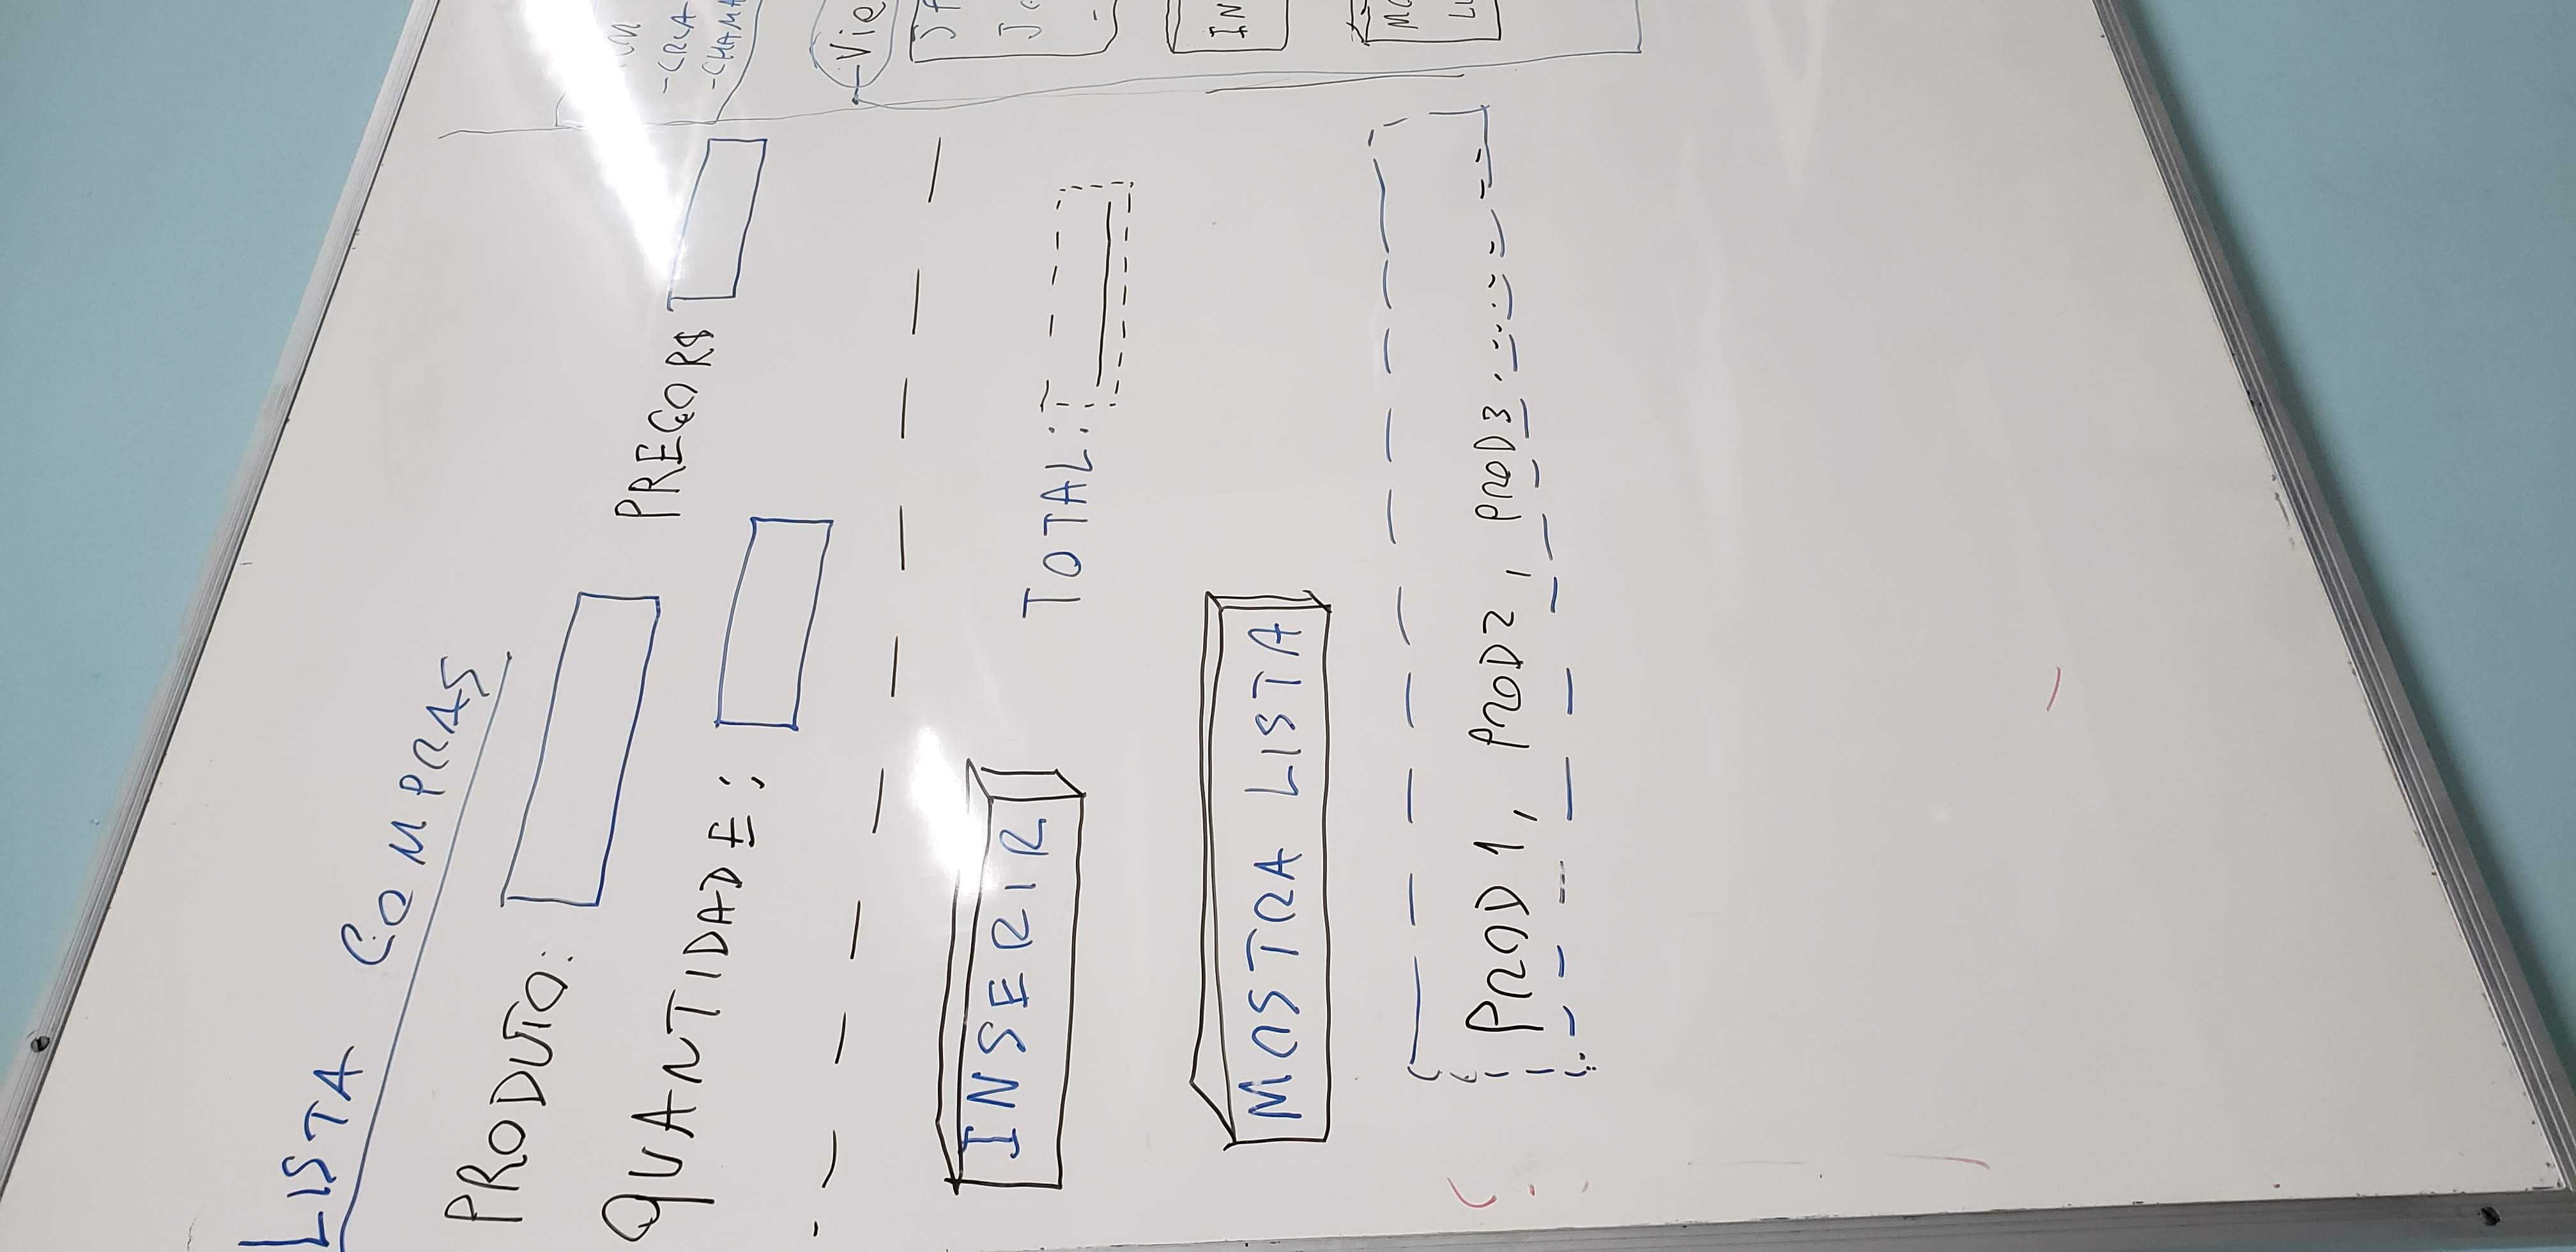 LISTA COMPRAS
PRODUTO:
QUANTIDADE:
PREÇO R$
INSERIR
TOTAL:
MOSTRA LISTA
PROD1, PROD2, PROD3.......
-CHAMA
Vie
IN